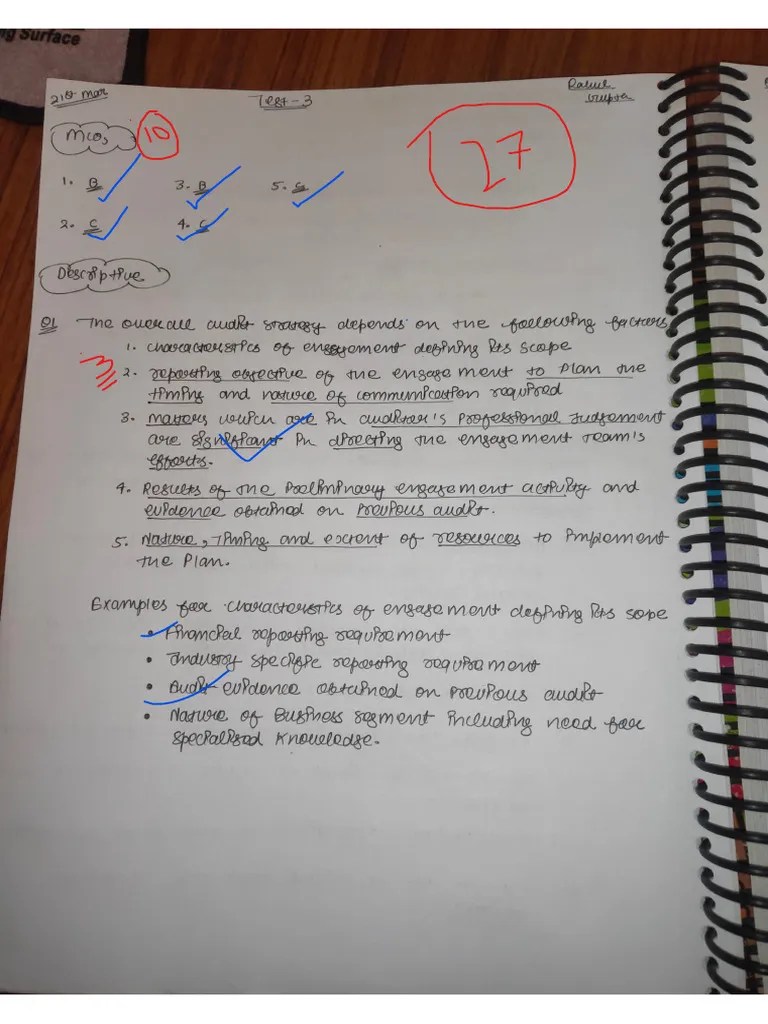 ng Surface
21st Mar
Test-3
Rahul
Gupta
MCQs
10
27
1. B
3. B
5. C
2. C
4. C
Descriptive
Q1 The overall audit strategy depends on the following factors
1. characteristics of engagement defining its scope
3
2. reporting objective of the engagement to plan the
timing and nature of communication required
3. matters which are in auditor's professional judgement
are significant in directing the engagement team's
efforts.
4. Results of the preliminary engagement activity and
evidence obtained on previous audit.
5. Nature, timing and extent of resources to implement
the plan.
Examples for characteristics of engagement defining its scope
• Financial reporting requirement
• Industry specific reporting requirement
• Audit evidence obtained on previous audit
• Nature of Business segment including need for
specialised knowledge.